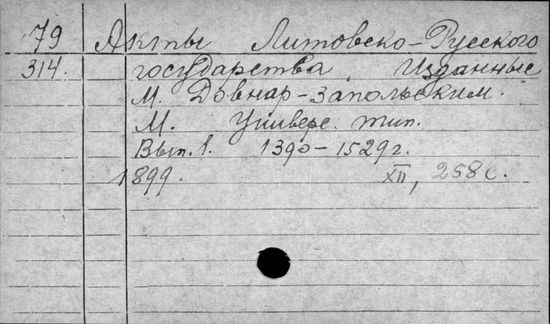 79 Акты Литовско-Русского
314. государства, изданные
М. Довнар-Запольским.
М. Универс. тип.
Вып. 1. 1390-1529 г.
1899. XII, 258 с.